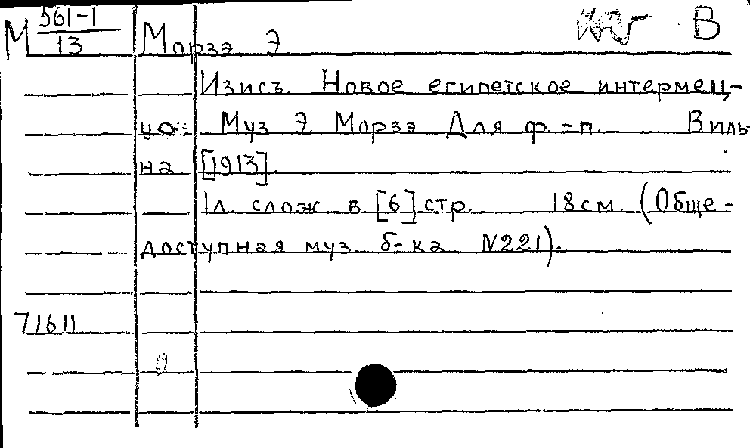 М 561-1 В
13 Морзэ Э
Изисъ. Новое египетское интермец-
цо. Муз Э Морзэ Для ф.-п. Виль-
на [1913].
1л. слож в [6] стр. 18см. (Обще-
доступная муз. б-ка N221).
71611